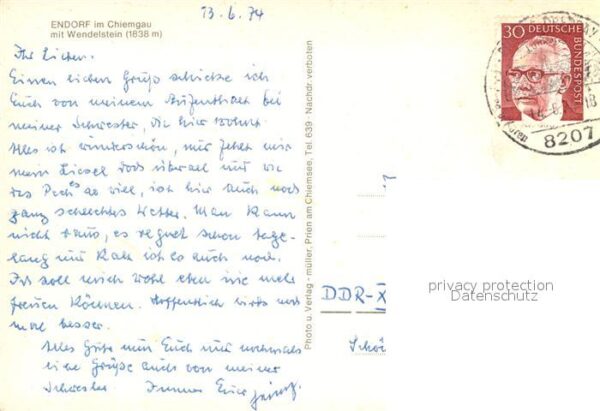 13.6.74
ENDORF im Chiemgau
mit Wendelstein (1838 m)
Ihr Lieben.
Einen lieben Gruß schicke ich
Euch von meinem Aufenthalt bei
meiner Schwester, die hier wohnt.
Alles ist wunderschön, nur fehlt mir
mein Liesel doch überall und wie
das Pech es so will, ist hier auch noch
ganz schlechtes Wetter. Man kann
nicht raus, es regnet schon tage-
lang und kalt ist es auch noch.
Ich soll mich wohl eben nie mehr
freuen können. Hoffentlich wirds noch
mal besser.
Alles Gute nun Euch und nochmals
liebe Grüße auch von meiner
Schwester. Immer Euer
Photo u. Verlag - müller, Prien am Chiemsee, Tel. 639 - Nachdr. verboten
30 DEUTSCHE BUNDESPOST
8207
DDR-X
Schö
privacy protection
Datenschutz